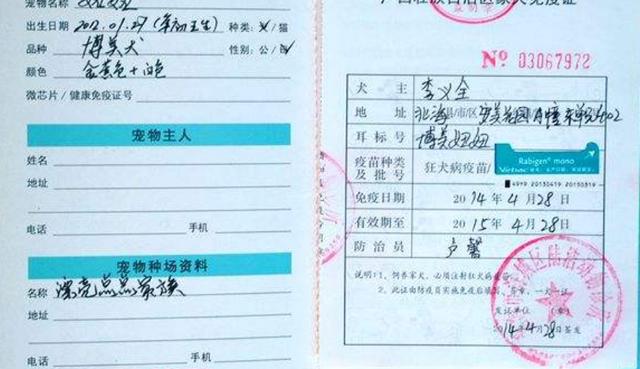 宠物名称
出生日期 2012.01.27
种类：犬/猫
品种 博美犬 性别：公/母
颜色 金黄色+白色
微芯片/健康免疫证号
宠物主人
姓名
地址
电话 手机
宠物种场资料
名称 漂亮点点家族
地址
电话 手机
№ 03067972
犬主 李义全
地址 北海 县/市/区
耳标号 博美妞妞
疫苗种类及批号 狂犬病疫苗/
Rabigen® mono
Virbac
4919 20130419 20150319
免疫日期 2014年4月28日
有效期至 2015年4月28日
防治员 卢馨
说明：1、饲养家犬，必须注射狂犬病疫苗。
2、此证由防疫员实施免疫后填写，盖章，一犬一证
发证单位（章）
2014年4月28日签发